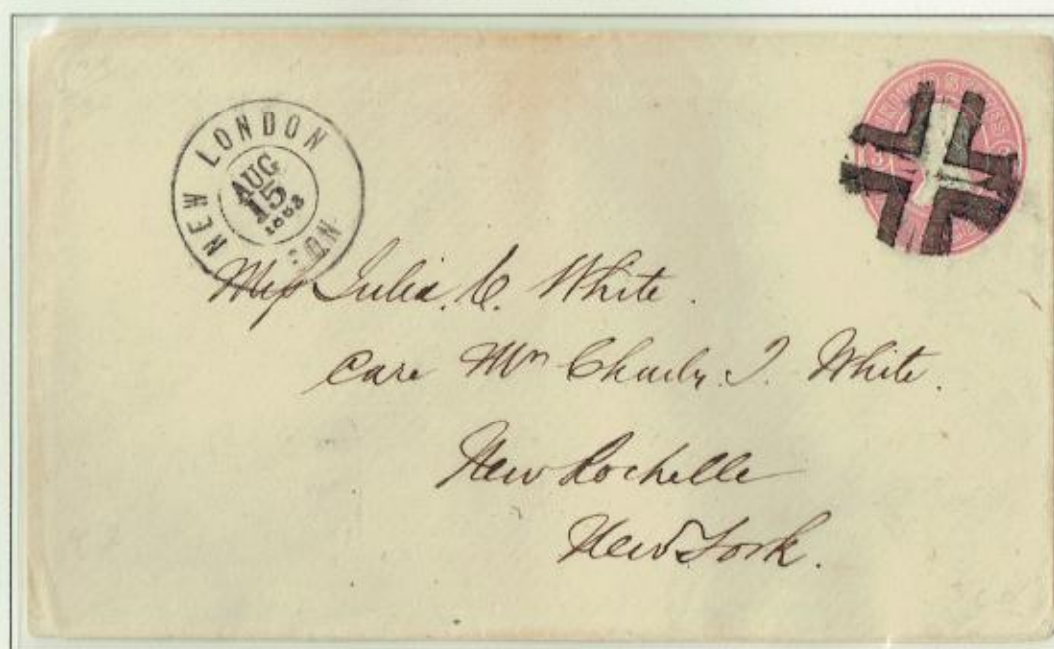 NEW LONDON
AUG
15
Miss Julia. C. White.
care Mrs Charles. T. White.
New Rochelle
New York.